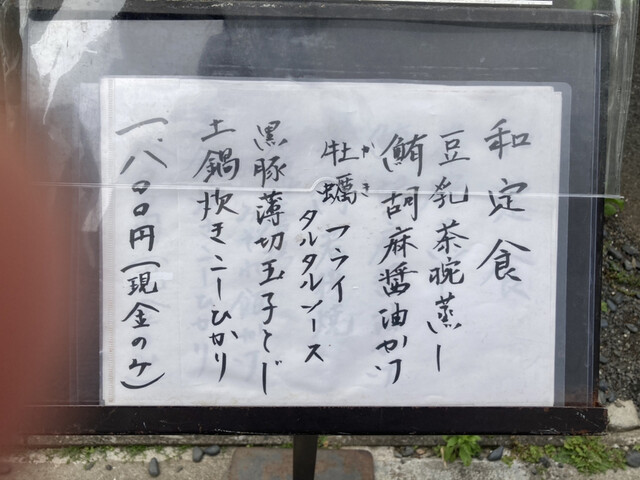 和定食
豆乳茶碗蒸し
鮪胡麻醤油かけ
牡蠣フライ
かき
タルタルソース
黒豚薄切玉子とじ
土鍋炊きこしひかり
一、八〇〇円（現金のみ）